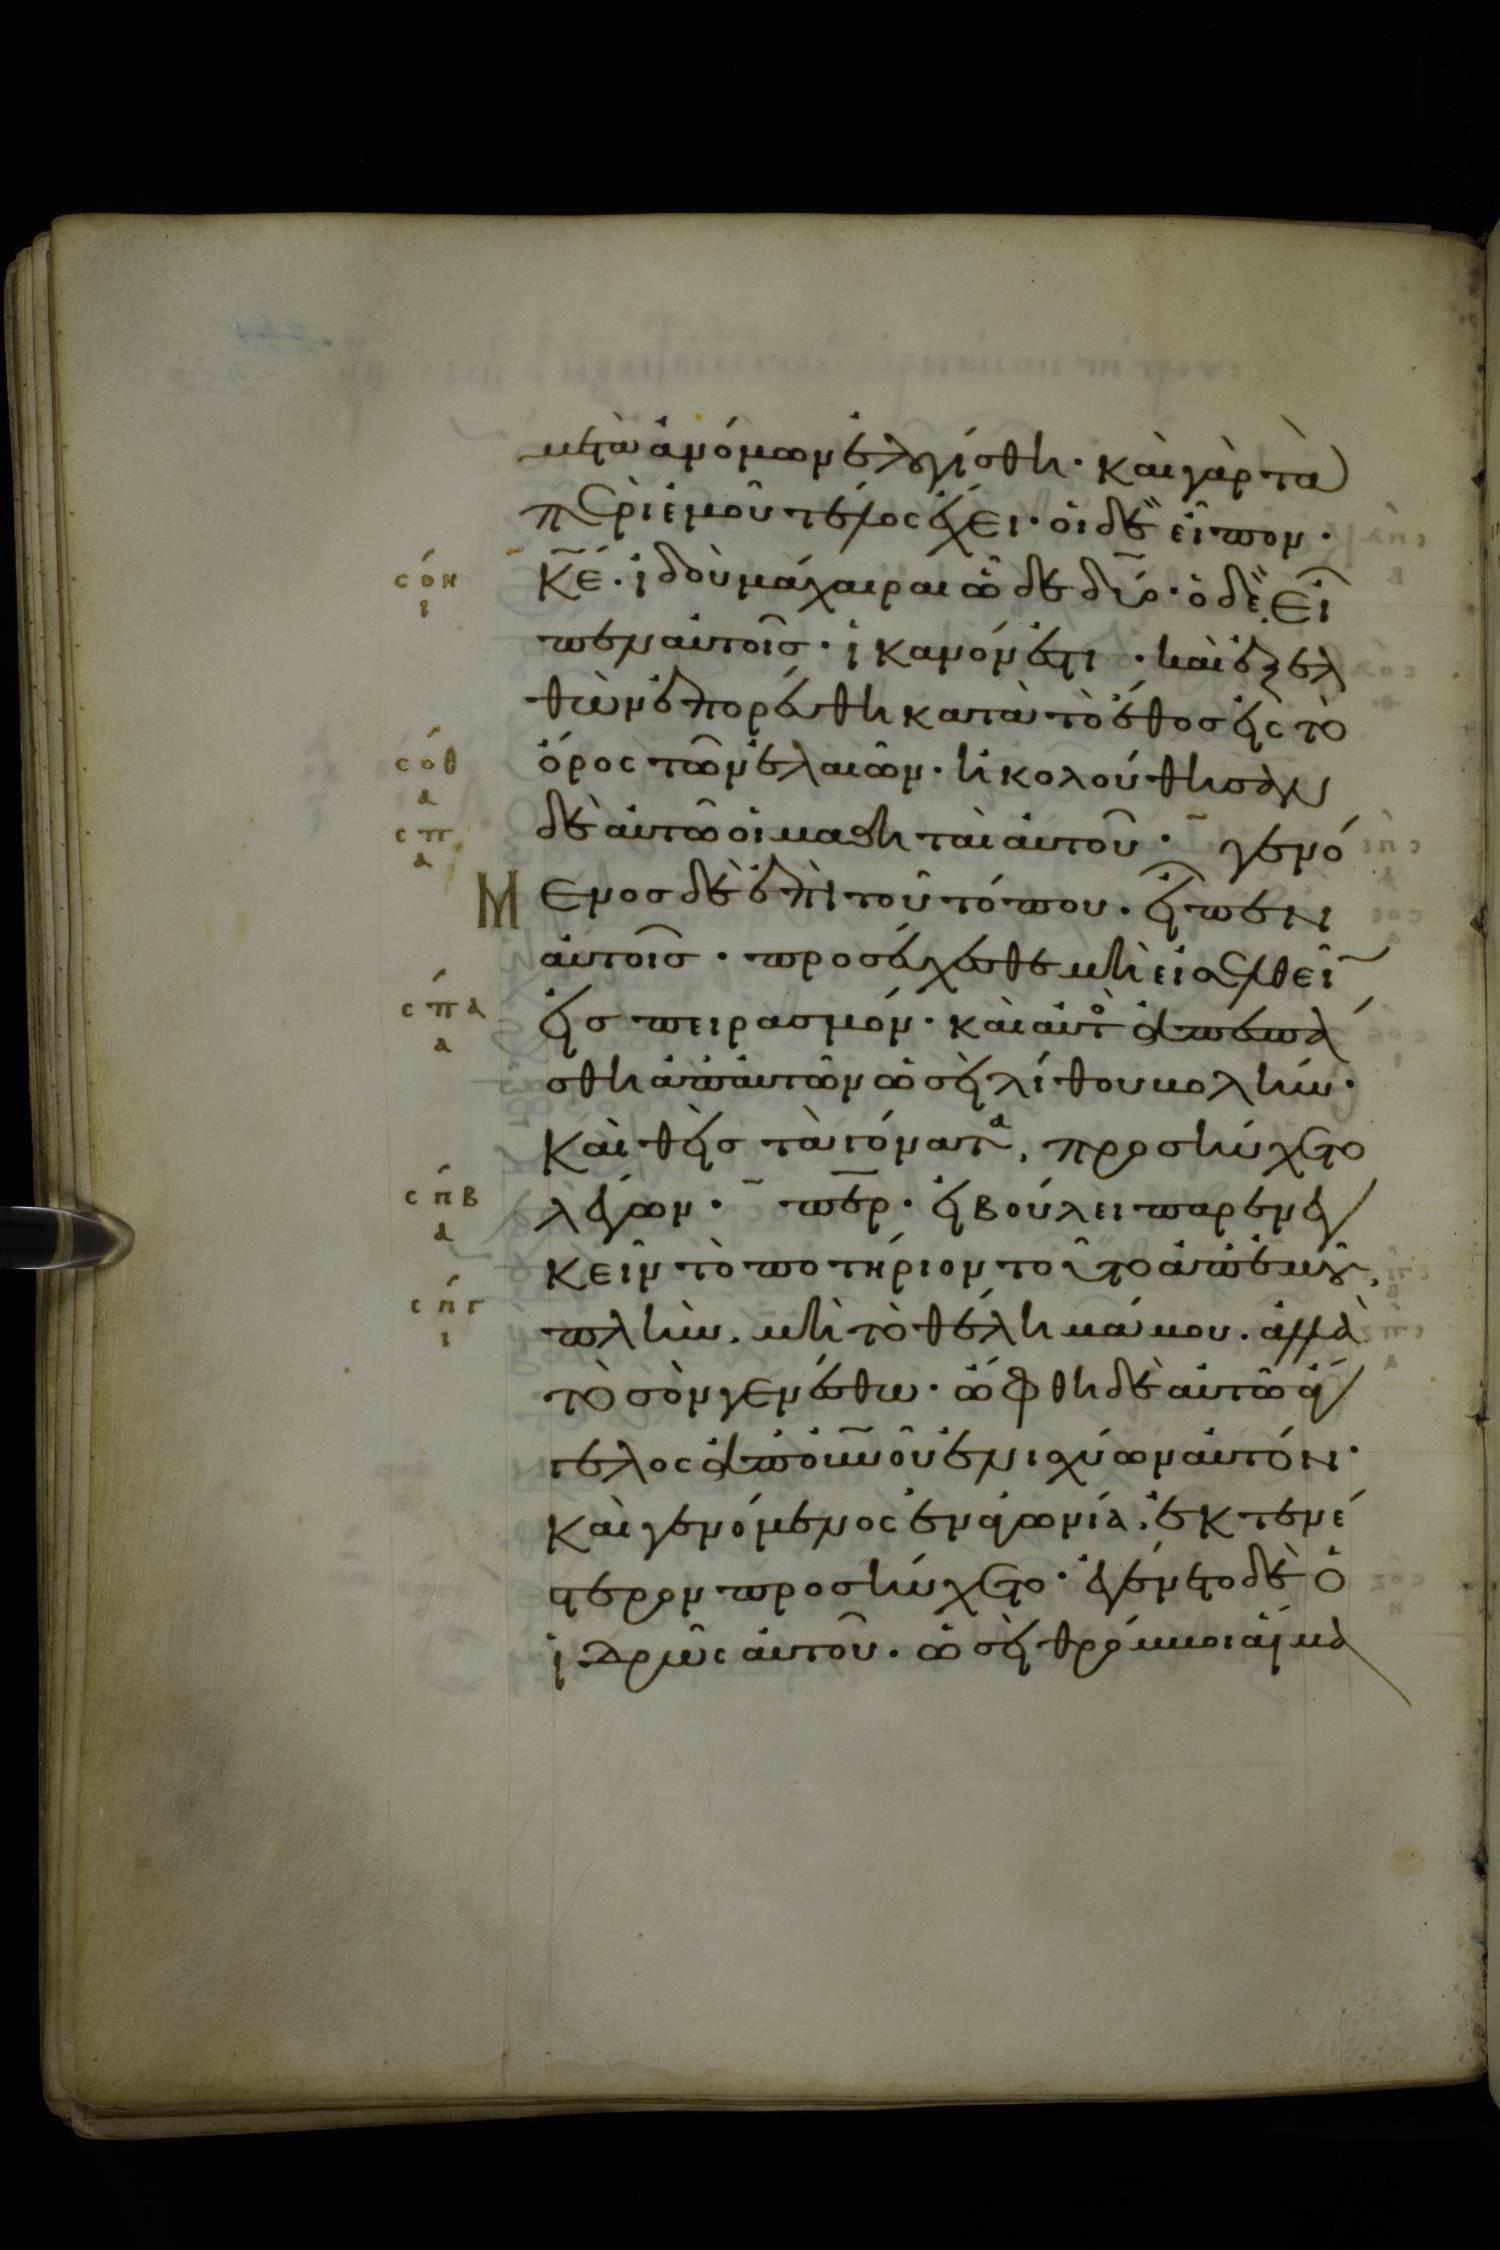 μετὰ ἀνόμων ἐλογίσθη· καὶ γὰρ τὰ
περὶ ἐμοῦ τέλος ἔχει· οἱ δὲ εἶπον·
σοη
ι
κ̅ε̅· ἰδοὺ μάχαιραι ὧδε δύο· ὁ δὲ εἶ
πεν αὐτοῖς· ἱκανόν ἐστι· καὶ ἐξελ
θὼν ἐπορεύθη κατὰ τὸ ἔθος εἰς τὸ
σοθ
α
ὄρος τῶν ἐλαιῶν· ἠκολούθησαν
σπ
α
δὲ αὐτῶ οἱ μαθηταὶ αὐτοῦ· γενό
Μ
ενος δὲ ἐπὶ τοῦ τόπου· εἶπεν
αὐτοῖς· προσεύχεσθε μὴ εἰσελθεῖ
σπα
α
εἰς πειρασμόν· καὶ αὐτὸ ἀπεσπά
σθη ἀπ' αὐτῶν ὡσεὶ λίθου βολήν·
καὶ θεὶς τὰ γόνατα, προσηύχετο
σπβ
α
λέγων· π̅ε̅ρ̅· εἰ βούλει παρενεγ
κεῖν τὸ ποτήριον τοῦτο ἀπ' ἐμοῦ,
σπγ
ι
πλὴν, μὴ τὸ θέλημά μου· ἀλλὰ
τὸ σὸν γενέσθω· ὤφθη δὲ αὐτῶ ἄγ
γελος ἀπ' ο̅υ̅ν̅ο̅υ̅ ἐνισχύων αὐτόν·
καὶ γενόμενος ἐν ἀγωνία, ἐκτενέ
στερον προσηύχετο· ἐγένετο δὲ ὁ
ἱδρὼς αὐτοῦ· ὡσεὶ θρόμβοι αἵμα